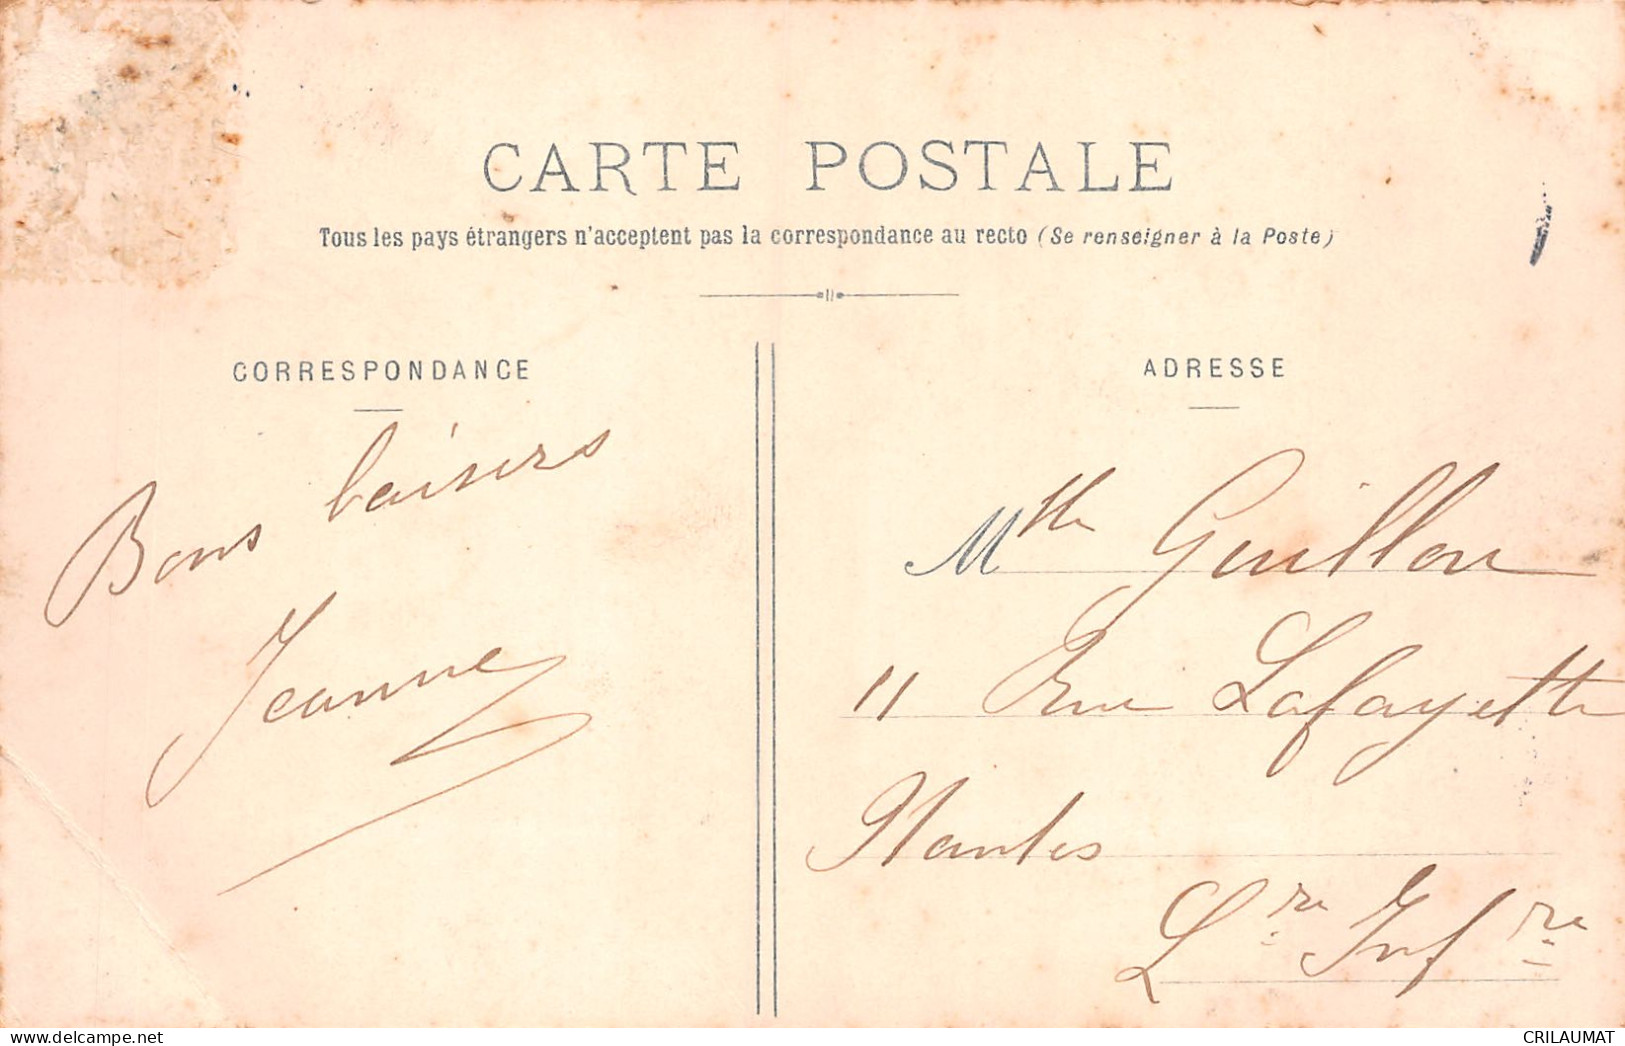 CARTE POSTALE
Tous les pays étrangers n'acceptent pas la correspondance au recto (Se renseigner à la Poste)
CORRESPONDANCE
Bons baisers
Jeanne
ADRESSE
Mlle Guillou
11 Rue Lafayette
Nantes
Lre Infre
CRILAUMAT